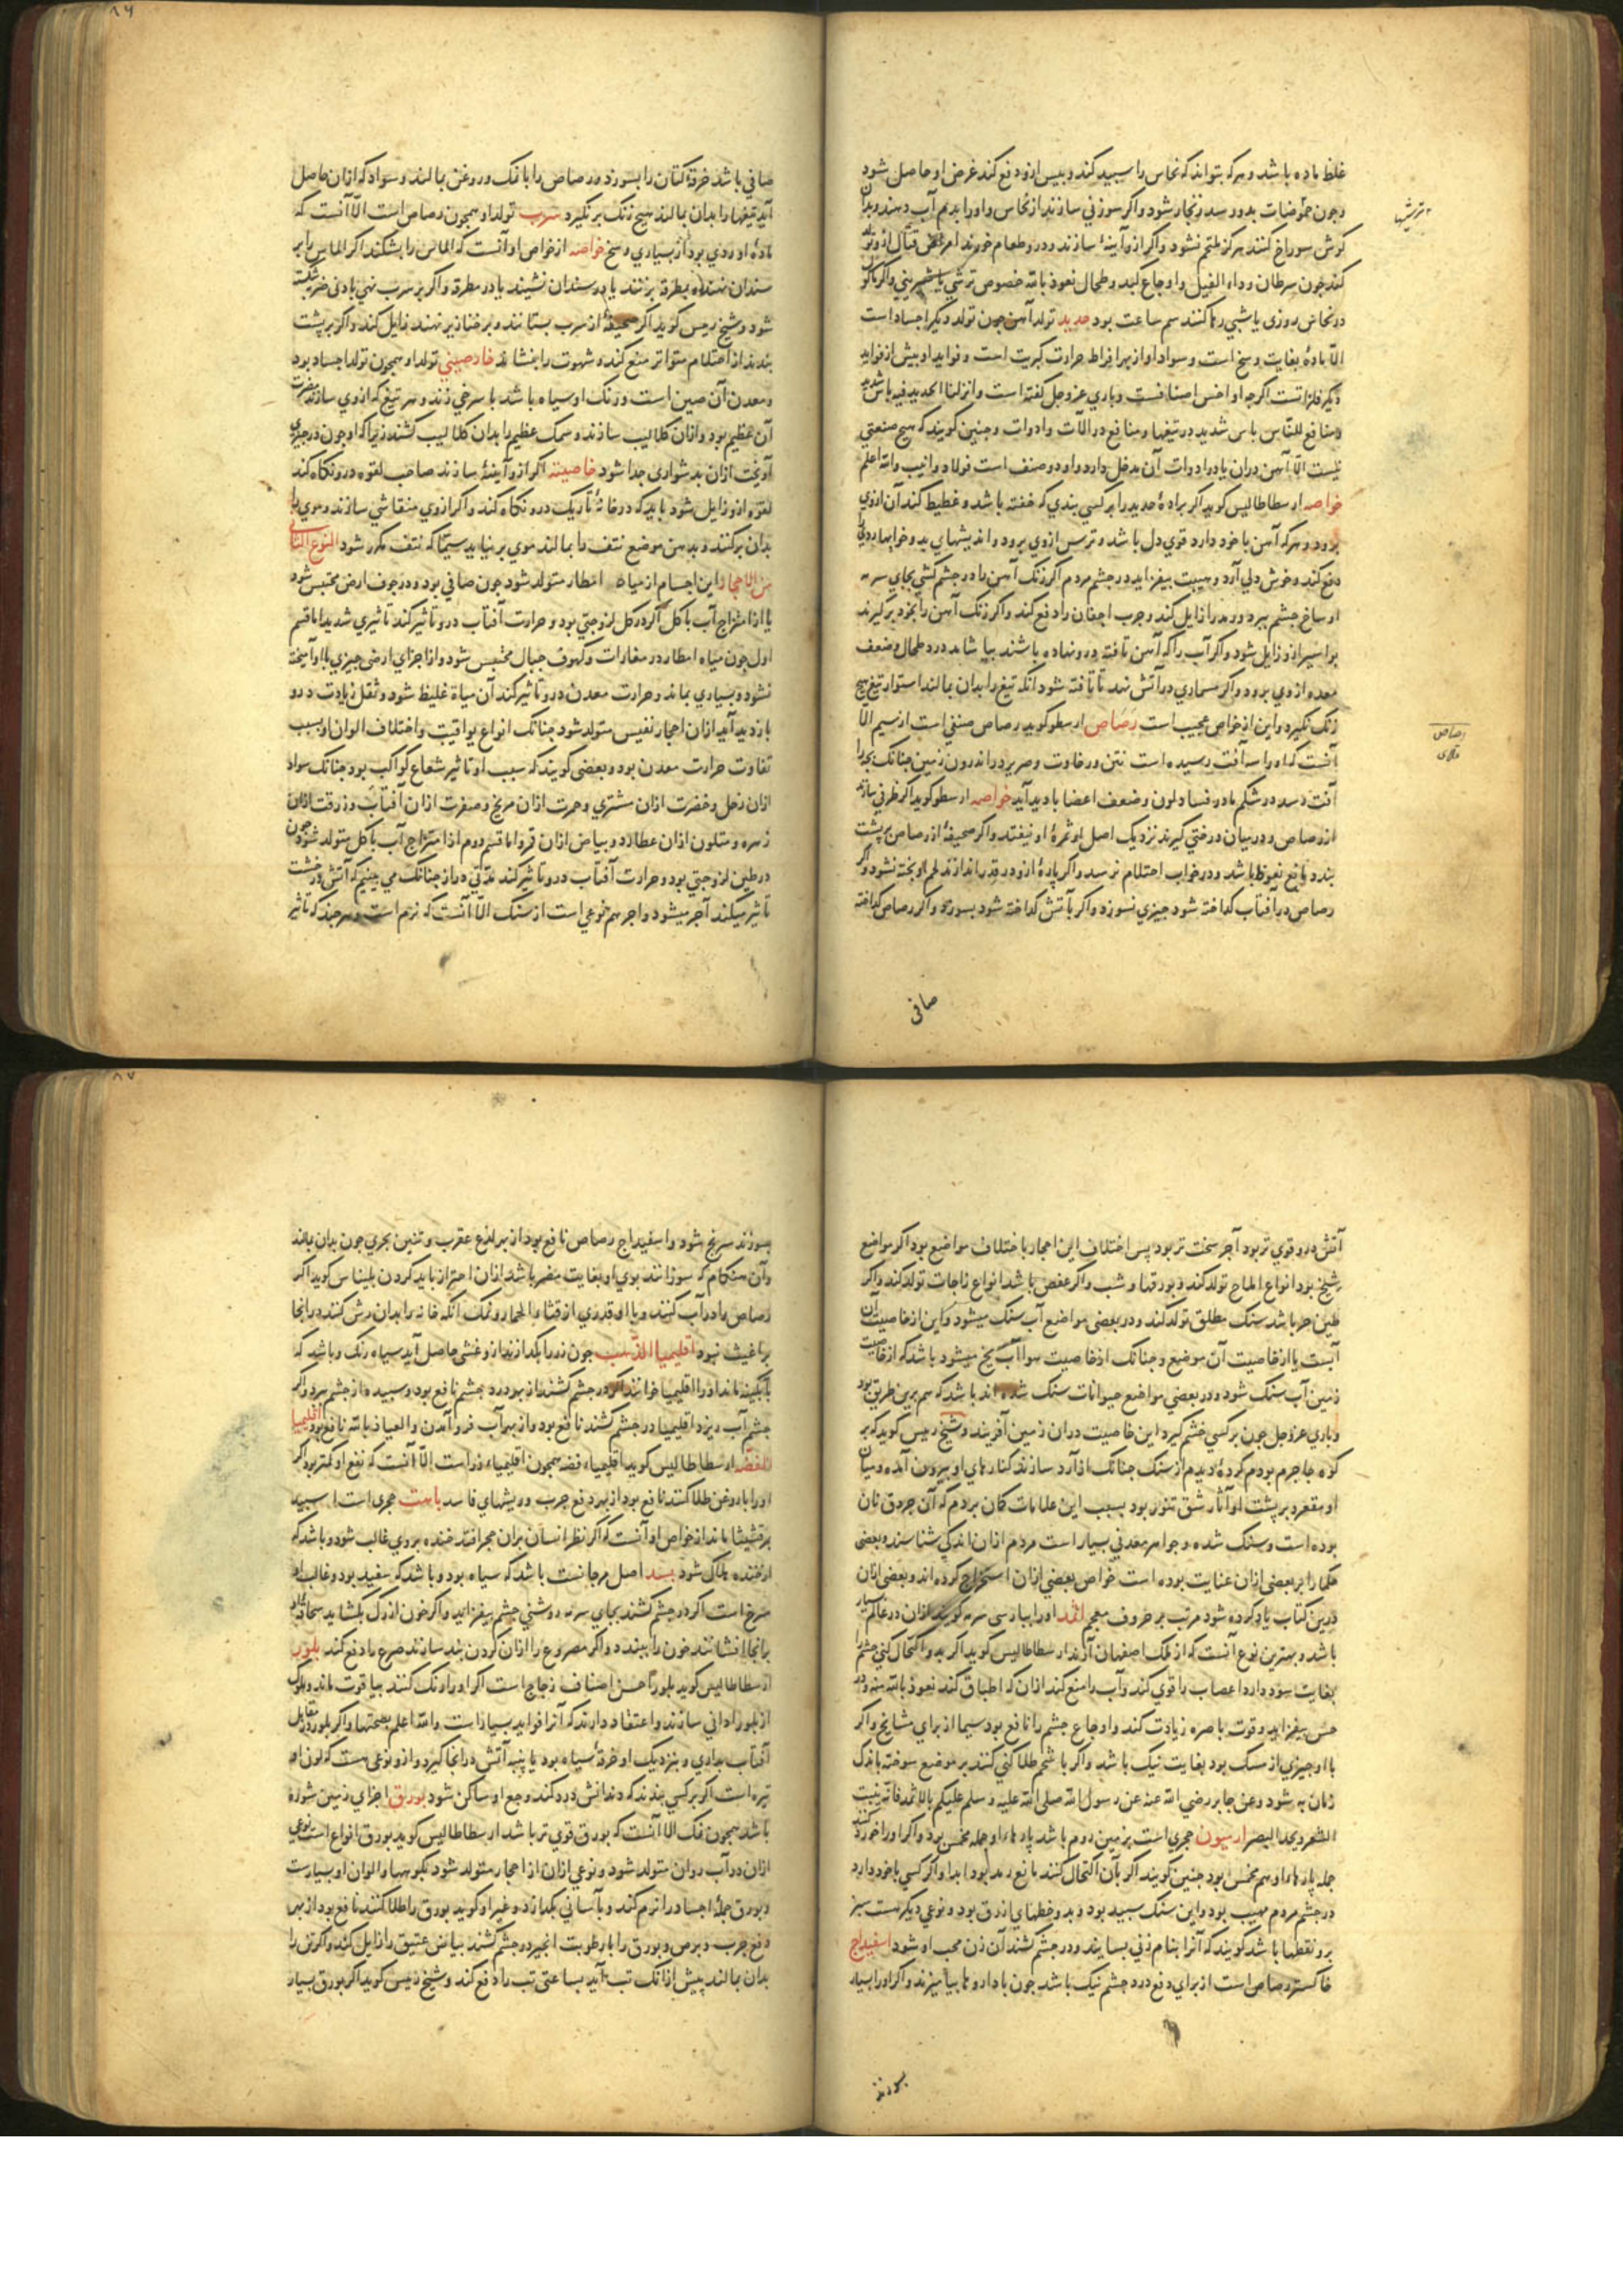 غلظ ماده باشد و هرکه بتواند که نحاس را سپید کند و یبس ازو دفع کند غرض او حاصل شود
وچون حموضات بدو رسد زنجار شود واکر سوزنی سازند از نحاس واورا بدم آب دهند وبدان
کوش سوراخ کنند هرکز ملتحم نشود واکر ازو آینهٔ سازند ودر و طعام خورند امراض قتال ازو تولد
کند چون سرطان وداء الفیل واوجاع کبد وطحال نعوذ بالله خصوص ترشی یا شیرینی واکر ماکول
در نحاس روزی یا شبی رها کنند سم ساعت بود حدید تولد آهن چون تولد دیکر اجساد است
الا مادهٔ بغایت وسخ است وسواد او از بهر افراط حرارت کبریت است وفواید او بیش از فواید
دیکر فلزاتست اکرچه او اخس اصنافست وباری عز وجل کفته است وانزلنا الحدید فیه باس شدید
ومنافع للناس باس شدید در تیغها ومنافع در الآت وادوات وچنین کویند که هیچ صنعتی
نیست الا آهن دران یا در ادوات آن مدخل دارد واو دو صنف است فولاد وانیب والله اعلم
خواصه ارسطاطالیس کوید اکر برادهٔ حدید را بر کسی بندی که خفته باشد وغطیط کند آن ازوی
برود وهرکه آهن با خود دارد قوی دل باشد وترس ازوی برود واندیشهای بد وخوابهای
دفع کند وخوش دلی آرد وهیبت بیفزاید در چشم مردم اکر زنک آهن را در چشم کشی بجای سرمه
اوساخ چشم ببرد ورمد را زایل کند وجرب اجفان را دفع کند واکر زنک آهن را بخود برکیرند
بواسیر ازو زایل شود واکر آب را که آهن تافته درو نهاده باشند بیاشامد درد طحال وضعف
معده ازوی برود واکر مسماری در آتش نهند تا تافته شود آنکه تیغ را بدان بمالند استوار تیغ هیچ
زنک نکیرد واین از خواص عجیب است رصاص ارسطو کوید رصاص صنفی است از سیم الا
آنست که اورا سه آفت رسیده است نتن ورخاوت وصریر در اندرون زمین چنانک بچه را
آفت رسد در شکم مادر وفساد لون وضعف اعضا بادید آید خواصه ارسطو کوید اکر ظرفی سازند
از رصاص ودر بیان درختی کیرند نزدیک اصل او ثمرهٔ او نیفتد واکر صحیفهٔ از رصاص بر پشت
بندد مانع نعوظ باشد ودر خواب احتلام نرسد واکر پارهٔ ازو در قدر اندازند لحم او پخته نشود واکر
رصاص در آفتاب کداخته شود چیزی نسوزد واکر بآتش کداخته شود بسوزد واکر رصاص کداخته
صافی
ترشیها
رصاص
قلعی
۸۶
صافی باشد خرقهٔ کتان را بسوزد ورصاص را با نمک وروغن بمالند وسواد که ازان حاصل
آید تیغها را بدان بمالند هیچ زنک برنکیرد سرب تولد او همچون رصاص است الا آنست که
مادهٔ او ردی بود از بسیاری وسخ خواصه از خواص او آنست که الماس را بشکند اکر الماس را بر
سندان نهند وبمطرقه بزنند یا در سندان نشیند یا در مطرقه واکر بر سرب نهی بادنی ضرب شکسته
شود وشیخ رییس کوید اکر صحیفهٔ از سرب بستانند وبر خنازیر نهند زایل کند واکر بر پشت
بندند از احتلام متواتر منع کند وشهوت را بنشاند خارصینی تولد او همچون تولد اجساد بود
ومعدن آن صین است ورنک او سیاه باشد با سرخی زند وهر تیغ که ازوی سازند مضرت
آن عظیم بود وازان کلالیب سازند وسمک عظیم را بدان کلالیب کشند زیرا که او چون در چیزی
آویخت ازان بدشواری جدا شود خاصیته اکر ازو آینهٔ سازند صاحب لقوه درو نکاه کند
لقوه ازو زایل شود باید که در خانهٔ تاریک درو نکاه کند واکر ازوی منقاشی سازند وموی را
بدان برکنند وبدهن موضع نتف را بمالند موی برنیاید سیما که نتف مکرر شود النوع الثانی
من الاحجار این اجسام از میاه امطار متولد شود چون صافی بود ودر جوف ارض محتبس شود
یا از امتزاج آب با کل اکر در کل لزوجتی بود وحرارت آفتاب درو تاثیر کند تاثیری شدید اما قسم
اول چون میاه امطار در مغارات وکهوف جبال محتبس شود واز اجزای ارضی چیزی با او آمیخته
نشود وبسیاری بماند وحرارت معدن درو تاثیر کند آن میاه غلیظ شود وثقل زیادت درو
بازدید آید ازان احجار نفیس متولد شود چنانک انواع یواقیت واختلاف الوان او بسبب
تفاوت حرارت معدن بود وبعضی کویند که سبب او تاثیر شعاع کواکب بود چنانک سواد
ازان زحل وخضرت ازان مشتری وحمرت ازان مریخ وصفرت ازان آفتاب وزرقت ازان
زهره ومتلون ازان عطارد وبیاض ازان قمر واما قسم دوم از امتزاج آب با کل متولد شود چون
در طین لزوجتی بود وحرارت آفتاب درو تاثیر کند مدتی دراز چنانک می بینیم که آتش در خشت
تاثیر میکند آجر میشود واجر هم نوعی است از سنک الا آنست که نرم است وهرچند که تاثیر
آتش درو قوی تر بود آجر سخت تر بود پس اختلاف این احجار باختلاف مواضع بود اکر مواضع
شیخ بود انواع املاح تولد کند وبورقها وشب واکر عفص باشد انواع زاجات تولد کند واکر
طین حر باشد سنک مطلق تولد کند ودر بعضی مواضع آب سنک میشود واین از خاصیت آن
آبست یا از خاصیت آن موضع وچنانک از خاصیت هوا آب یخ میشود باشد که از خاصیت
زمین آب سنک شود ودر بعضی مواضع حیوانات سنک شده اند باشد که هم برین طریق بود
وباری عز وجل چون بر کسی خشم کیرد این خاصیت دران زمین آفریند وشیخ رییس کوید که بر
کوه جاجرم بودم کردهٔ دیدم از سنک چنانک از آرد سازند کنارهای او بیرون آمده ومیان
او مقعر وبر پشت او آثار شق تنور بود بسبب این علامات کمان بردم که آن جردق نان
بوده است وسنک شده وجواهر معدنی بسیار است مردم ازان اندکی شناسند وبعضی
حکما را بر بعضی ازان عنایت بوده است خواص بعضی ازان استخراج کرده اند وبعضی ازان
درین کتاب یاد کرده شود مرتب بر حروف معجم اثمد اورا بپارسی سرمه کویند ازان در عالم بسیار
باشد وبهترین نوع آنست که از ملک اصفهان آرند ارسطاطالیس کوید اکر بدو اکتحال کنی چشم را
بغایت سود دارد واعصاب را قوی کند وآب را منع کند ازان که اطباق کند نعوذ بالله منه ودر
حسن بیفزاید وقوت باصره زیادت کند واوجاع چشم را نافع بود سیما از برای مشایخ واکر
با او چیزی از مسک بود بغایت نیک باشد واکر با شحم طلا کنی کنند بر موضع سوخته باندک
زمان به شود وعن جابر رضی الله عنه عن رسول الله صلی الله علیه وسلم علیکم بالاثمد فانه ینبت
الشعر ویحد البصر ارمیون حجری است بزمین روم باشد پارهاء او جمله مخمس بود واکر اورا خورد کنند
جمله پارهاء او هم مخمس بود چنین کویند اکر بآن اکتحال کنند مانع رمد بود ابدا واکر کسی با خود دارد
در چشم مردم مهیب بود واین سنک سپید بود وبدو خطهای ازرق بود ونوعی دیکر هست سبز
برو نقطها باشد کویند که آنرا بنام زنی بسایند ودر چشم کشند آن زن محب او شود اسفیداج
خاکستر رصاص است از برای دفع درد چشم نیک باشد چون با داروها بیامیزند واکر اورا بسیار
بسوزند
۸۷
بسوزند سرنج شود واسفیداج رصاص نافع بود از بهر لدغ عقرب وتنین بحری چون بدان بمالند
وآن هنکام که سوزانند بوی او بغایت مضر باشد ازان احتراز باید کردن بلیناس کوید اکر
رصاص را در آب کنند وبا او قدری از قثاء الحمار ونمک آنکه خانه را بدان رش کنند در انجا
براغیث نبود اقلیمیا الذهب چون زر را بکدازند ازو غشی حاصل آید سیاه رنک وباشد که
بآبکینه ماند اورا اقلیمیا خوانند اکر در چشم کشند از بهر درد چشم نافع بود وسپیده از چشم ببرد واکر
چشم آب ریزد اقلیمیا در چشم کشند نافع بود واز بهر آب فرو آمدن والعیاذ بالله نافع بود اقلیمیا
الفضه ارسطاطالیس کوید اقلیمیاء فضه همچون اقلیمیاء زر است الا آنست که نفع او کمتر بود اکر
اورا با روغن طلا کنند نافع بود از بهر دفع جرب وریشهای فاسد باهت حجری است اسپید
بمرقشیشا ماند از خواص او آنست که اکر نظر انسان بران حجر افتد خنده بروی غالب شود وباشد که
از خنده هلاک شود بسد اصل مرجانست باشد که سیاه بود وباشد که سفید بود وغالب او
سرخ است اکر در چشم کشند بجای سرمه روشنی چشم بیفزاید واکر خون از رک بکشاید سحاقه او
بر انجا افشانند خون را ببندد واکر مصروع را ازان کردن بند سازند صرع را دفع کند بلور
ارسطاطالیس کوید بلور احسن اصناف زجاج است اکر اورا رنک کنند بیاقوت ماند وملوک
از بلور اوانی سازند واعتقاد دارند که آنرا فواید بسیار است والله اعلم بصحتها واکر بلور در مقابل
آفتاب بداری وبنزدیک او خرقهٔ سیاه بود یا پنبه آتش در انجا کیرد وازو نوعی هست که لون او
تیره است اکر بر کسی بندند که دندانش درد کند وجع او ساکن شود بورق اجزای زمین شوره
باشد همچون نمک الا آنست که بورق قوی تر باشد ارسطاطالیس کوید بورق انواع است نوعی
ازان در آب روان متولد شود ونوعی ازان از احجار متولد شود بکوهها والوان او بسیارست
وبورق جملهٔ اجساد را نرم کند وبآسانی بکدازد وغیر او کوید بورق را طلا کنند نافع بود از بهر
دفع جرب وبرص وبورق را با رطوبت انجیر در چشم کشند بیاض عتیق را زایل کند واکر تن را
بدان بمالند پیش ازانک تب آید بساعتی تب را دفع کند وشیخ رییس کوید اکر بورق بسیار